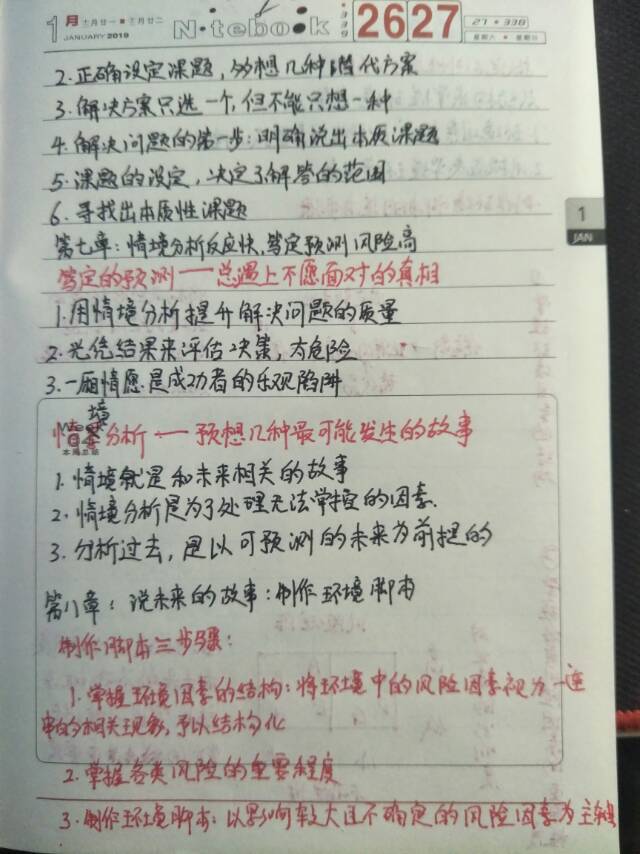 1月 十二月廿一 ■ 十二月廿二
JANUARY 2019
N·tebook
339
26 27
27 · 338
星期六 · 星期日
2.正确设定课题,多想几种替代方案
3.解决方案只选一个,但不能只想一种
4.解决问题的第一步:明确说出本质课题
5.课题的设定,决定了解答的范围
6.寻找出本质性课题
1
JAN
第七章:情境分析反应快,笃定预测风险高
笃定的预测——总遇上不愿面对的真相
1.用情境分析提升解决问题的质量
2.光凭结果来评估决策,太危险
3.一厢情愿是成功者的乐观陷阱
情境分析——预想几种最可能发生的故事
本周总结
1.情境就是和未来相关的故事
2.情境分析是为了处理无法掌控的因素.
3.分析过去,是以可预测的未来为前提的
第八章:说未来的故事:制作环境脚本
制作脚本三步骤:
1.掌握环境因素的结构:将环境中的风险因素视为一连
串的相关现象,予以结构化
2.掌握各类风险的重要程度
3.制作环境脚本:以影响较大且不确定的风险因素为主轴